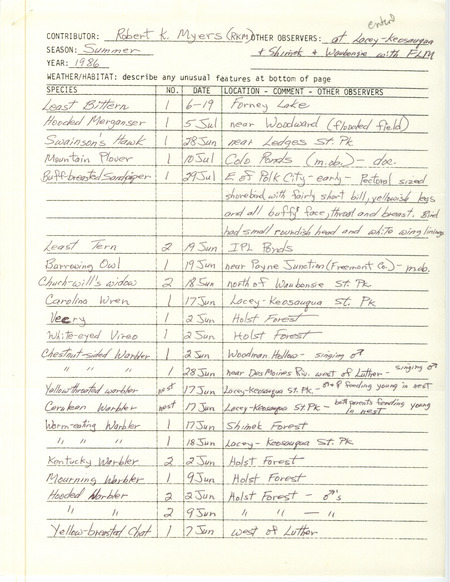 entered
CONTRIBUTOR: Robert K. Myers (RKM) OTHER OBSERVERS: at Lacey-Keosauqua
SEASON: Summer + Shimek + Waubonsie with FLM
YEAR: 1986
WEATHER/HABITAT: describe any unusual features at bottom of page
SPECIES NO. DATE LOCATION - COMMENT - OTHER OBSERVERS
Least Bittern 1 6-19 Forney Lake
Hooded Merganser 1 5 Jul near Woodward (flooded field)
Swainson's Hawk 1 28 Jun near Ledges St. Pk
Mountain Plover 1 10 Jul Colo Ponds (m.ob.) - doc.
Buff-breasted Sandpiper 1 29 Jul E of Polk City - early - Pectoral sized
shorebird, with fairly short bill, yellowish legs
and all buffy face, throat and breast. Bird
had small roundish head and white wing linings
Least Tern 2 19 Jun IPL Ponds
Burrowing Owl 1 19 Jun near Payne Junction (Freemont Co.) - m.ob.
Chuck-will's widow 2 18 Jun north of Waubonsie St. Pk
Carolina Wren 1 17 Jun Lacey-Keosauqua St. Pk
Veery 1 2 Jun Holst Forest
White-eyed Vireo 1 2 Jun Holst Forest
Chestnut-sided Warbler 1 2 Jun Woodman Hollow - singing ♂
" " " 1 28 Jun near Des Moines Rv. west of Luther - singing ♂
Yellow throated warbler nest 17 Jun Lacey-Keosauqua St. Pk. - ♂+♀ feeding young in nest
Cerulean Warbler nest 17 Jun Lacey-Keosauqua St. Pk - both parents feeding young in nest
Worm-eating Warbler 1 17 Jun Shimek Forest
" " " 1 18 Jun Lacey-Keosauqua St. Pk
Kentucky Warbler 2 2 Jun Holst Forest
Mourning Warbler 1 9 Jun Holst Forest
Hooded Warbler 2 2 Jun Holst Forest - ♂'s
" " 2 9 Jun " " - "
Yellow-breasted Chat 1 7 Jun west of Luther